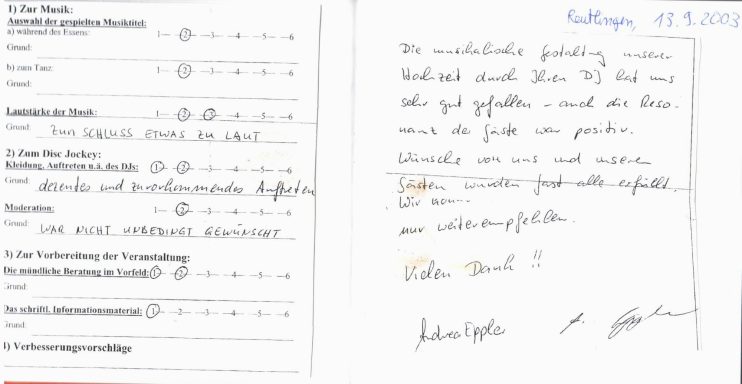 1) Zur Musik:
Auswahl der gespielten Musiktitel:
a) während des Essens: 1---2---3---4---5---6
Grund:
b) zum Tanz: 1---2---3---4---5---6
Grund:
Lautstärke der Musik: 1---2---3---4---5---6
Grund: ZUM SCHLUSS ETWAS ZU LAUT
2) Zum Disc Jockey:
Kleidung, Auftreten u.ä. des DJs: 1---2---3---4---5---6
Grund: dezentes und zuvorkommendes Auftreten
Moderation: 1---2---3---4---5---6
Grund: WAR NICHT UNBEDINGT GEWÜNSCHT
3) Zur Vorbereitung der Veranstaltung:
Die mündliche Beratung im Vorfeld: 1---2---3---4---5---6
Grund:
Das schriftl. Informationsmaterial: 1---2---3---4---5---6
Grund:
4) Verbesserungsvorschläge
Reutlingen, 13.9.2003
Die musikalische Gestaltung unserer
Hochzeit durch Ihren DJ hat uns
sehr gut gefallen - auch die Reso-
nanz der Gäste war positiv.
Wünsche von uns und unseren
Gästen wurden fast alle erfüllt.
Wir
nur weiterempfehlen.
Vielen Dank !!
Andrea Eppler